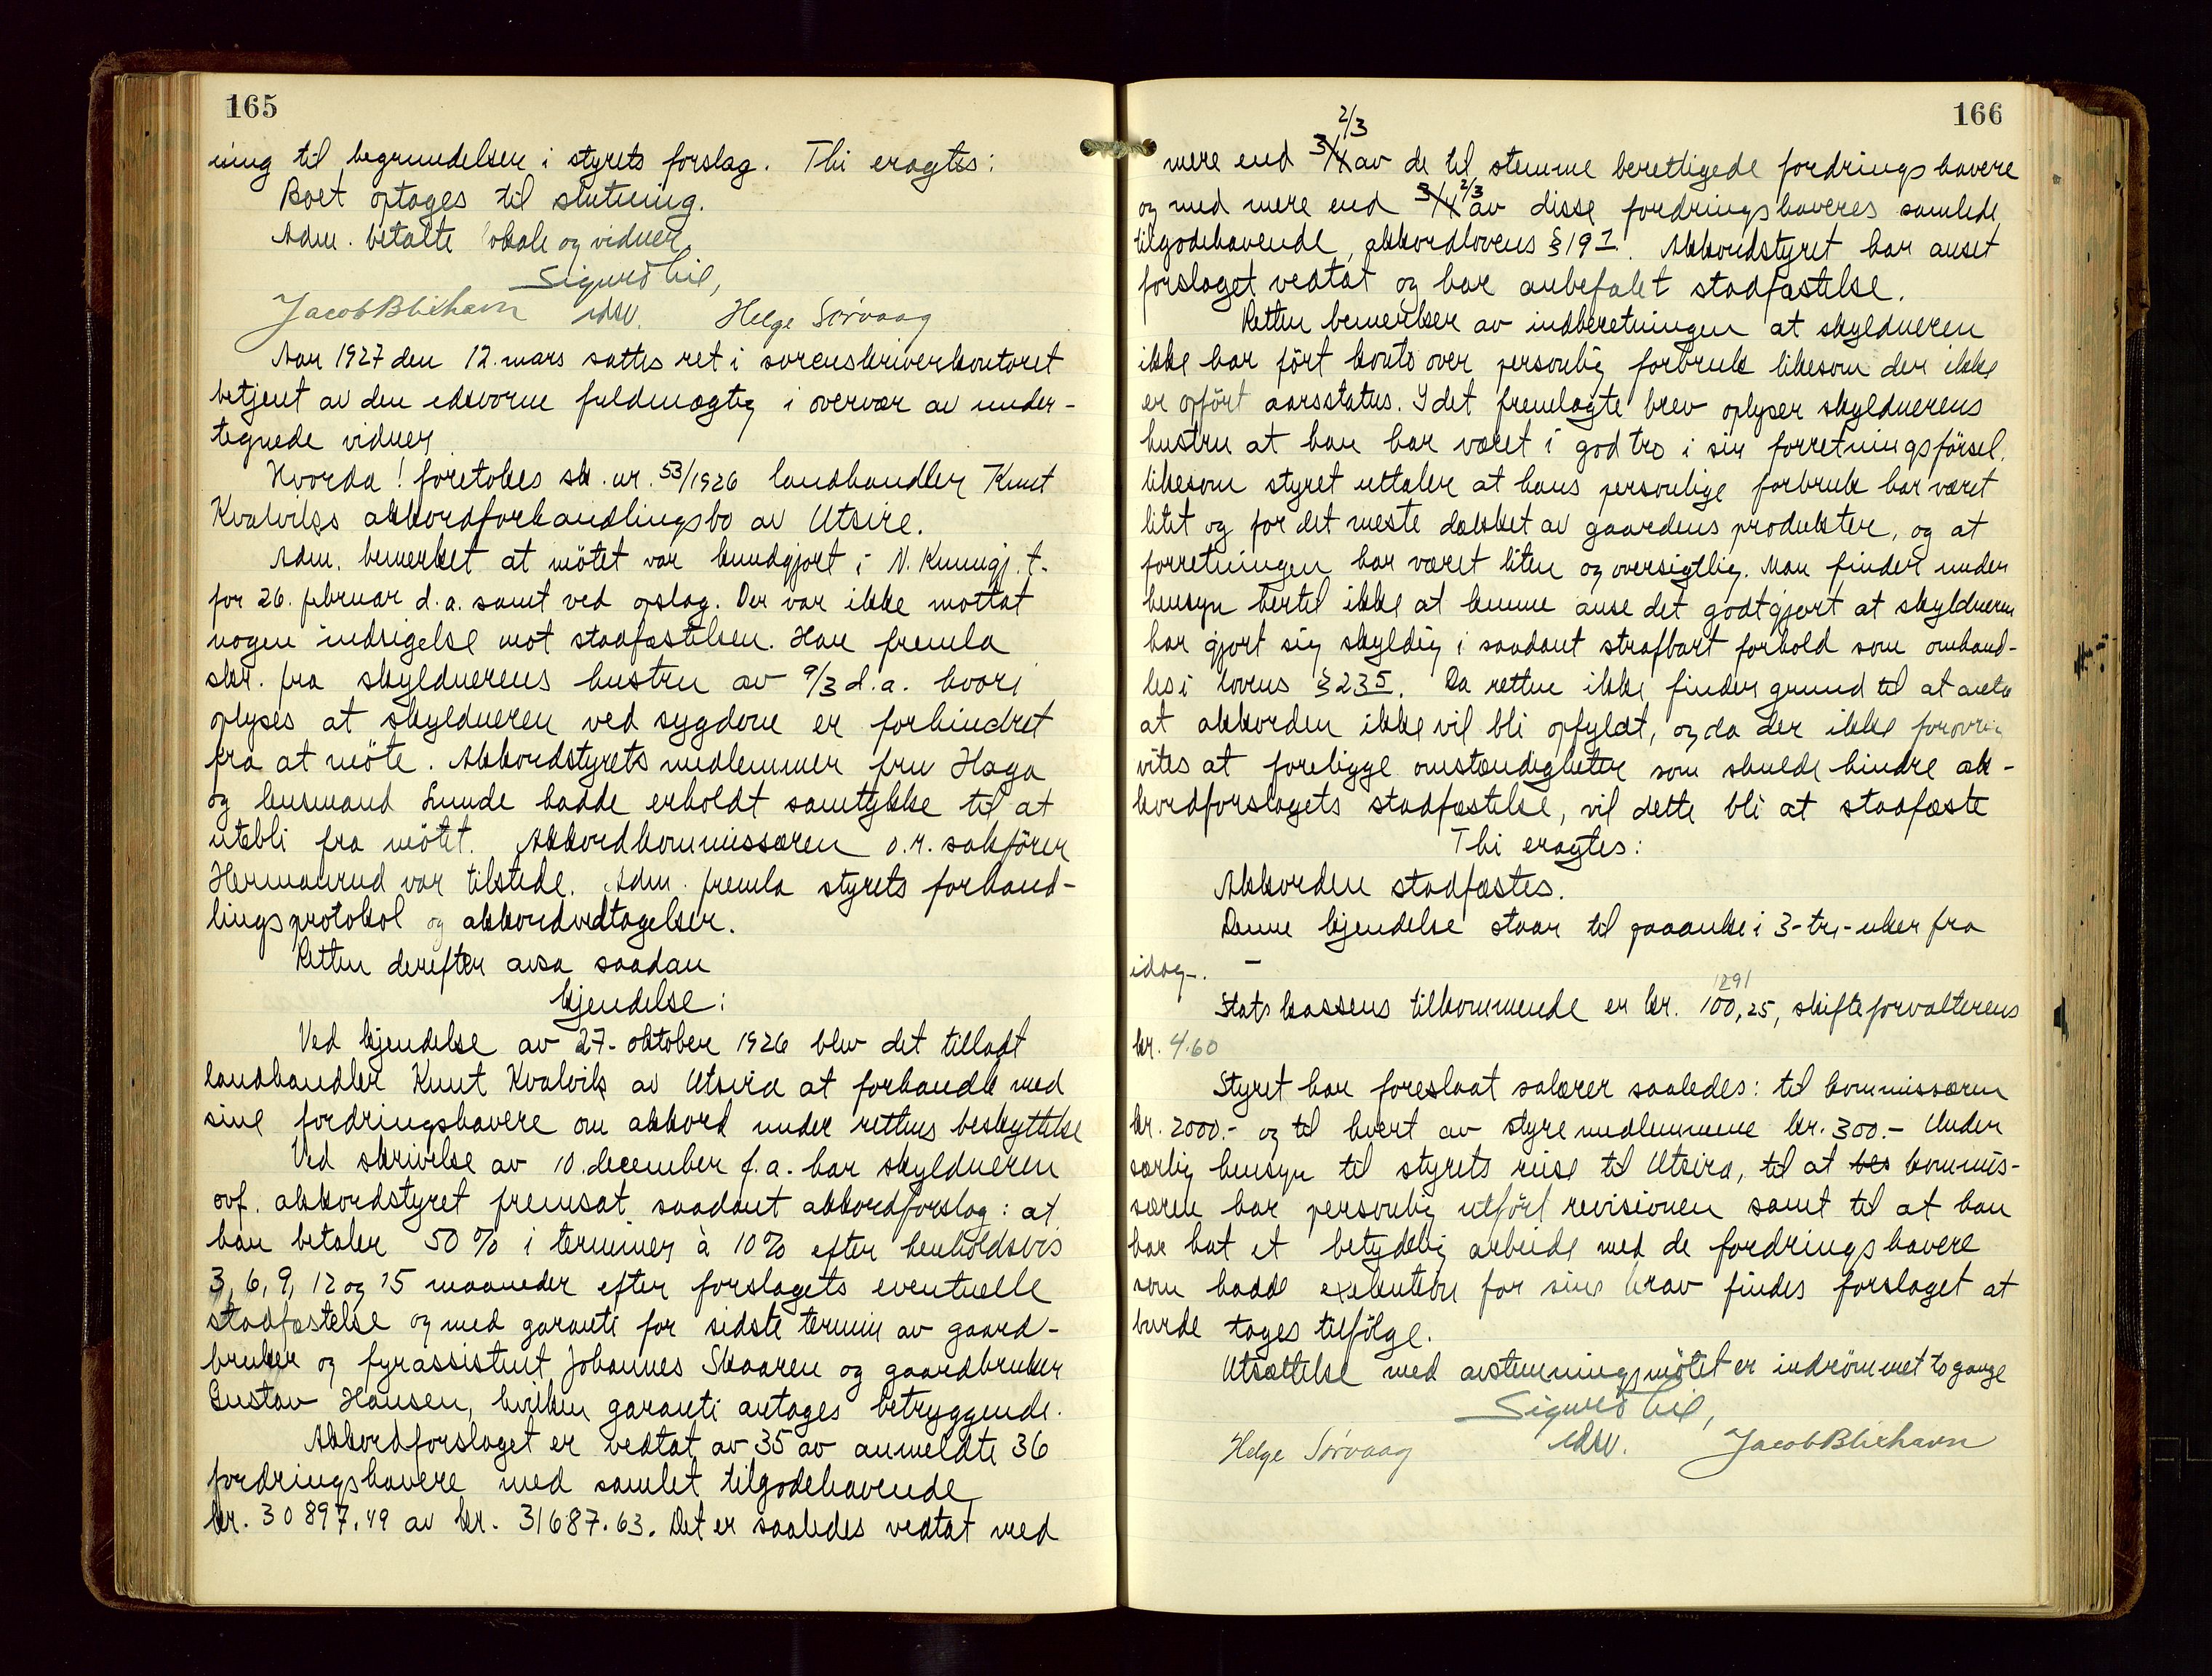 165
ning til begrundelsen i styrets forslag. Thi eragtes:
Boet optages til slutning.
Adm. betalte lokale og vidner.
Sigurd Lie,
Jacob Blikhavn edsv. Helge Sørvaag
Aar 1927 den 12. mars sattes ret i sorenskriverkontoret
betjent av den edsvorne fuldmægtig i overvær av under-
tegnede vidner
Hvorda! foretokes sk. nr. 53/1926 landhandler Knut
Kvalviks akkordforhandlingsbo av Utsire.
Adm. bemerket at møtet var kundgjort i N. Kunngj. t.
for 26. februar d.a. samt ved opslag. Der var ikke mottat
nogen indsigelse mot stadfæstelsen. Han fremla
skr. fra skyldnerens hustru av 9/3 d.a. hvori
oplyses at skyldneren ved sygdom er forhindret
fra at møte. Akkordstyrets medlemmer fru Haga
og lensmand Lunde hadde erholdt samtykke til at
utebli fra møtet. Akkordkommissæren o.r. sakfører
Hermanrud var tilstede. Adm. fremla styrets forhand-
lingsprotokol og akkordvedtagelser.
Retten derefter avsa saadan
kjendelse:
Ved kjendelse av 27. oktober 1926 blev det tilladt
landhandler Knut Kvalvik av Utsira at forhandle med
sine fordringshavere om akkord under rettens beskyttelse
Ved skrivelse av 10. december f.a. har skyldneren
ovf. akkordstyret fremsat saadant akkordforslag: at
han betaler 50 % i terminer à 10 % efter henholdsvis
3, 6, 9, 12 og 15 maaneder efter forslagets eventuelle
stadfæstelse og med garanti for sidste termin av gaard-
bruker og fyrassistent Johannes Skaaren og gaardbruker
Gustav Hansen, hvilken garanti antages betryggende.
Akkordforslaget er vedtat av 35 av anmeldte 36
fordringshavere med samlet tilgodehavende
kr. 30897.49 av kr. 31687.63. Det er saaledes vedtat med
166
2/3
mere end 3/4 av de til stemme berettigede fordringshavere
og med mere end 3/4 2/3 av disse fordringshaveres samlede
tilgodehavende, akkordlovens § 19 1. Akkordstyret har anset
forslaget vedtat og har anbefalet stadfæstelse.
Retten bemerker av indberetningen at skyldneren
ikke har ført konto over personlig forbruk likesom der ikke
er opført aarsstatus. I det fremlagte brev oplyser skyldnerens
hustru at han har været i god tro i sin forretningsførsel,
likesom styret uttaler at hans personlige forbruk har været
litet og for det meste dækket av gaardens produkter, og at
forretningen har været liten og oversigtlig. Man finder under
hensyn hertil ikke at kunne anse det godtgjort at skyldneren
har gjort sig skyldig i saadant strafbart forhold som omhand-
les i lovens § 23 5. Da retten ikke finder grund til at anta
at akkorden ikke vil bli opfyldt, og da der ikke forøvrig
vites at foreligge omstændigheter som skulde hindre ak-
kordforslagets stadfæstelse, vil dette bli at stadfæste
Thi eragtes:
Akkorden stadfæstes.
Denne kjendelse staar til paaanke i 3-tre-uker fra
idag-. -
1291
Statskassens tilkommende er kr. 100,25, skifteforvalterens
kr. 4.60
Styret har foreslaat salærer saaledes: til kommissæren
kr. 2000.- og til hvert av styremedlemmene kr. 300.- Under
særlig hensyn til styrets reise til Utsira, til at bes kommis-
særen har personlig utført revisionen samt til at han
har hat et betydelig arbeide med de fordringshavere
som hadde exekution for sine krav findes forslaget at
burde tages tilfølge.
Utsættelse med avstemningsmøtet er indrømmet to gange
Sigurd Lie,
Helge Sørvaag edsv. Jacob Blikhavn